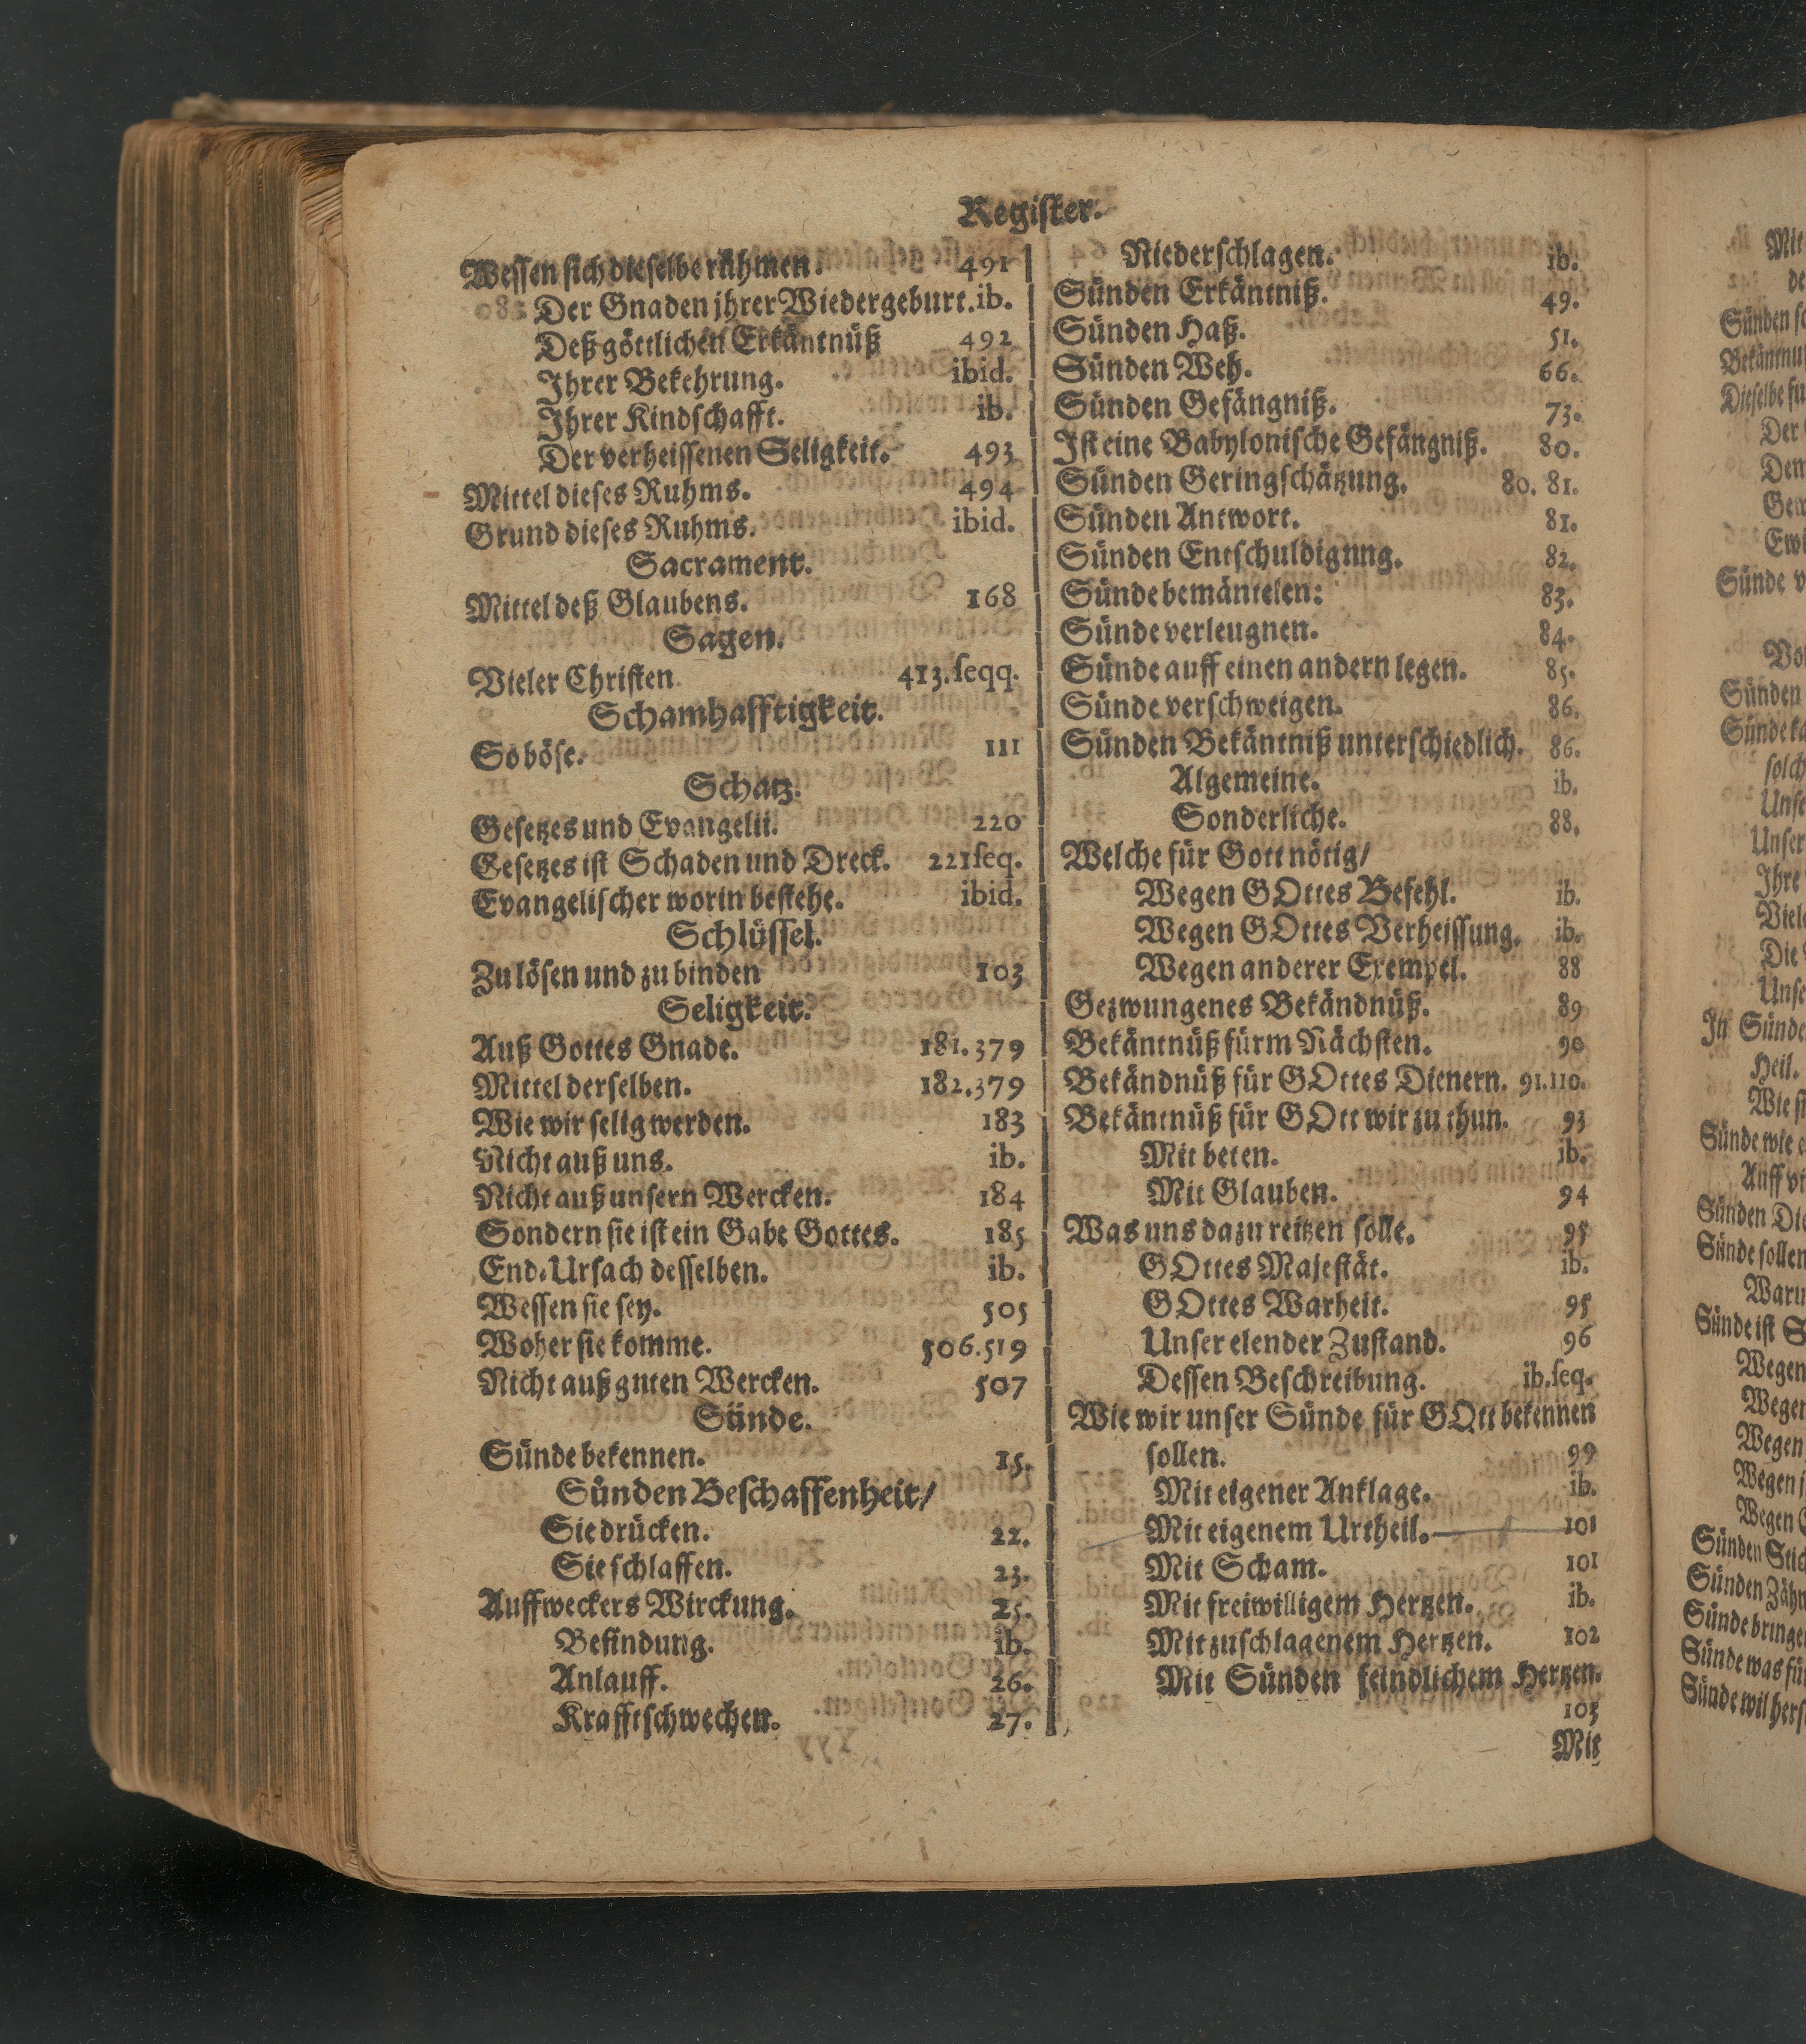 Register.
Wessen sich dieselbe rühmen. 491
Der Gnaden jhrer Wiedergeburt. ib.
Deß göttlichen Erkäntnüß 492
Jhrer Bekehrung. ibid.
Jhrer Kindschafft. ib.
Der verheissenen Seligkeit. 493
Mittel dieses Ruhms. 494
Grund dieses Ruhms. ibid.
Sacrament.
Mittel deß Glaubens. 168
Sagen.
Vieler Christen 413. seqq.
Schamhafftigkeit.
So böse. 111
Schatz.
Gesetzes und Evangelii. 220
Gesetzes ist Schaden und Dreck. 221 seq.
Evangelischer worin bestehe. ibid.
Schlüssel.
Zu lösen und zu binden 103
Seligkeit.
Auß Gottes Gnade. 181. 379
Mittel derselben. 182. 379
Wie wir selig werden. 183
Nicht auß uns. ib.
Nicht auß unsern Wercken. 184
Sondern sie ist ein Gabe Gottes. 185
End-Ursach desselben. ib.
Wessen sie sey. 505
Woher sie komme. 506. 519
Nicht auß guten Wercken. 507
Sünde.
Sünde bekennen. 15.
Sünden Beschaffenheit/
Sie drücken. 22.
Sie schlaffen. 23.
Auffweckers Wirckung. 25.
Befindung. ib.
Anlauff. 26.
Krafftschwechen. 27.
Niederschlagen. ib.
Sünden Erkäntniß. 49.
Sünden Haß. 51.
Sünden Weh. 66.
Sünden Gefängniß. 73.
Ist eine Babylonische Gefängniß. 80.
Sünden Geringschätzung. 80. 81.
Sünden Antwort. 81.
Sünden Entschuldigung. 82.
Sünde bemäntelen: 83.
Sünde verleugnen. 84.
Sünde auff einen andern legen. 85.
Sünde verschweigen. 86.
Sünden Bekäntniß unterschiedlich. 86.
Algemeine. ib.
Sonderliche. 88.
Welche für Gott nötig/
Wegen GOttes Befehl. ib.
Wegen GOttes Verheissung. ib.
Wegen anderer Exempel. 88
Gezwungenes Bekändnüß. 89
Bekäntnüß fürm Nächsten. 90
Bekändnüß für GOttes Dienern. 91. 110.
Bekäntnüß für GOtt wir zu thun. 93
Mit beten. ib.
Mit Glauben. 94
Was uns dazu reitzen solle. 95
GOttes Majestät. ib.
GOttes Warheit. 95
Unser elender Zustand. 96
Dessen Beschreibung. ib. seq.
Wie wir unser Sünde für GOtt bekennen
sollen. 99
Mit eigener Anklage. ib.
Mit eigenem Urtheil. 101
Mit Scham. 101
Mit freiwilligem Hertzen. ib.
Mit zuschlagenem Hertzen. 102
Mit Sünden feindlichem Hertzen.
103
Mit